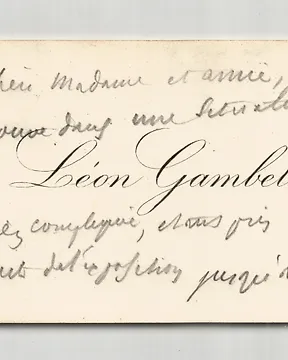 chère Madame et amie,
trouve dans une situati
Léon Gambet
ez compliquée, et
de l'exposition jusqu'à